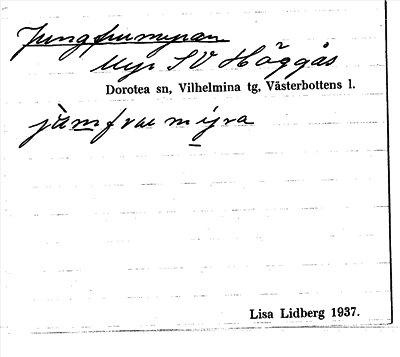 Jungfrumyran
Myr SV Häggås
Dorotea sn, Vilhelmina tg, Västerbottens l.
jùmfrumýra
Lisa Lidberg 1937.